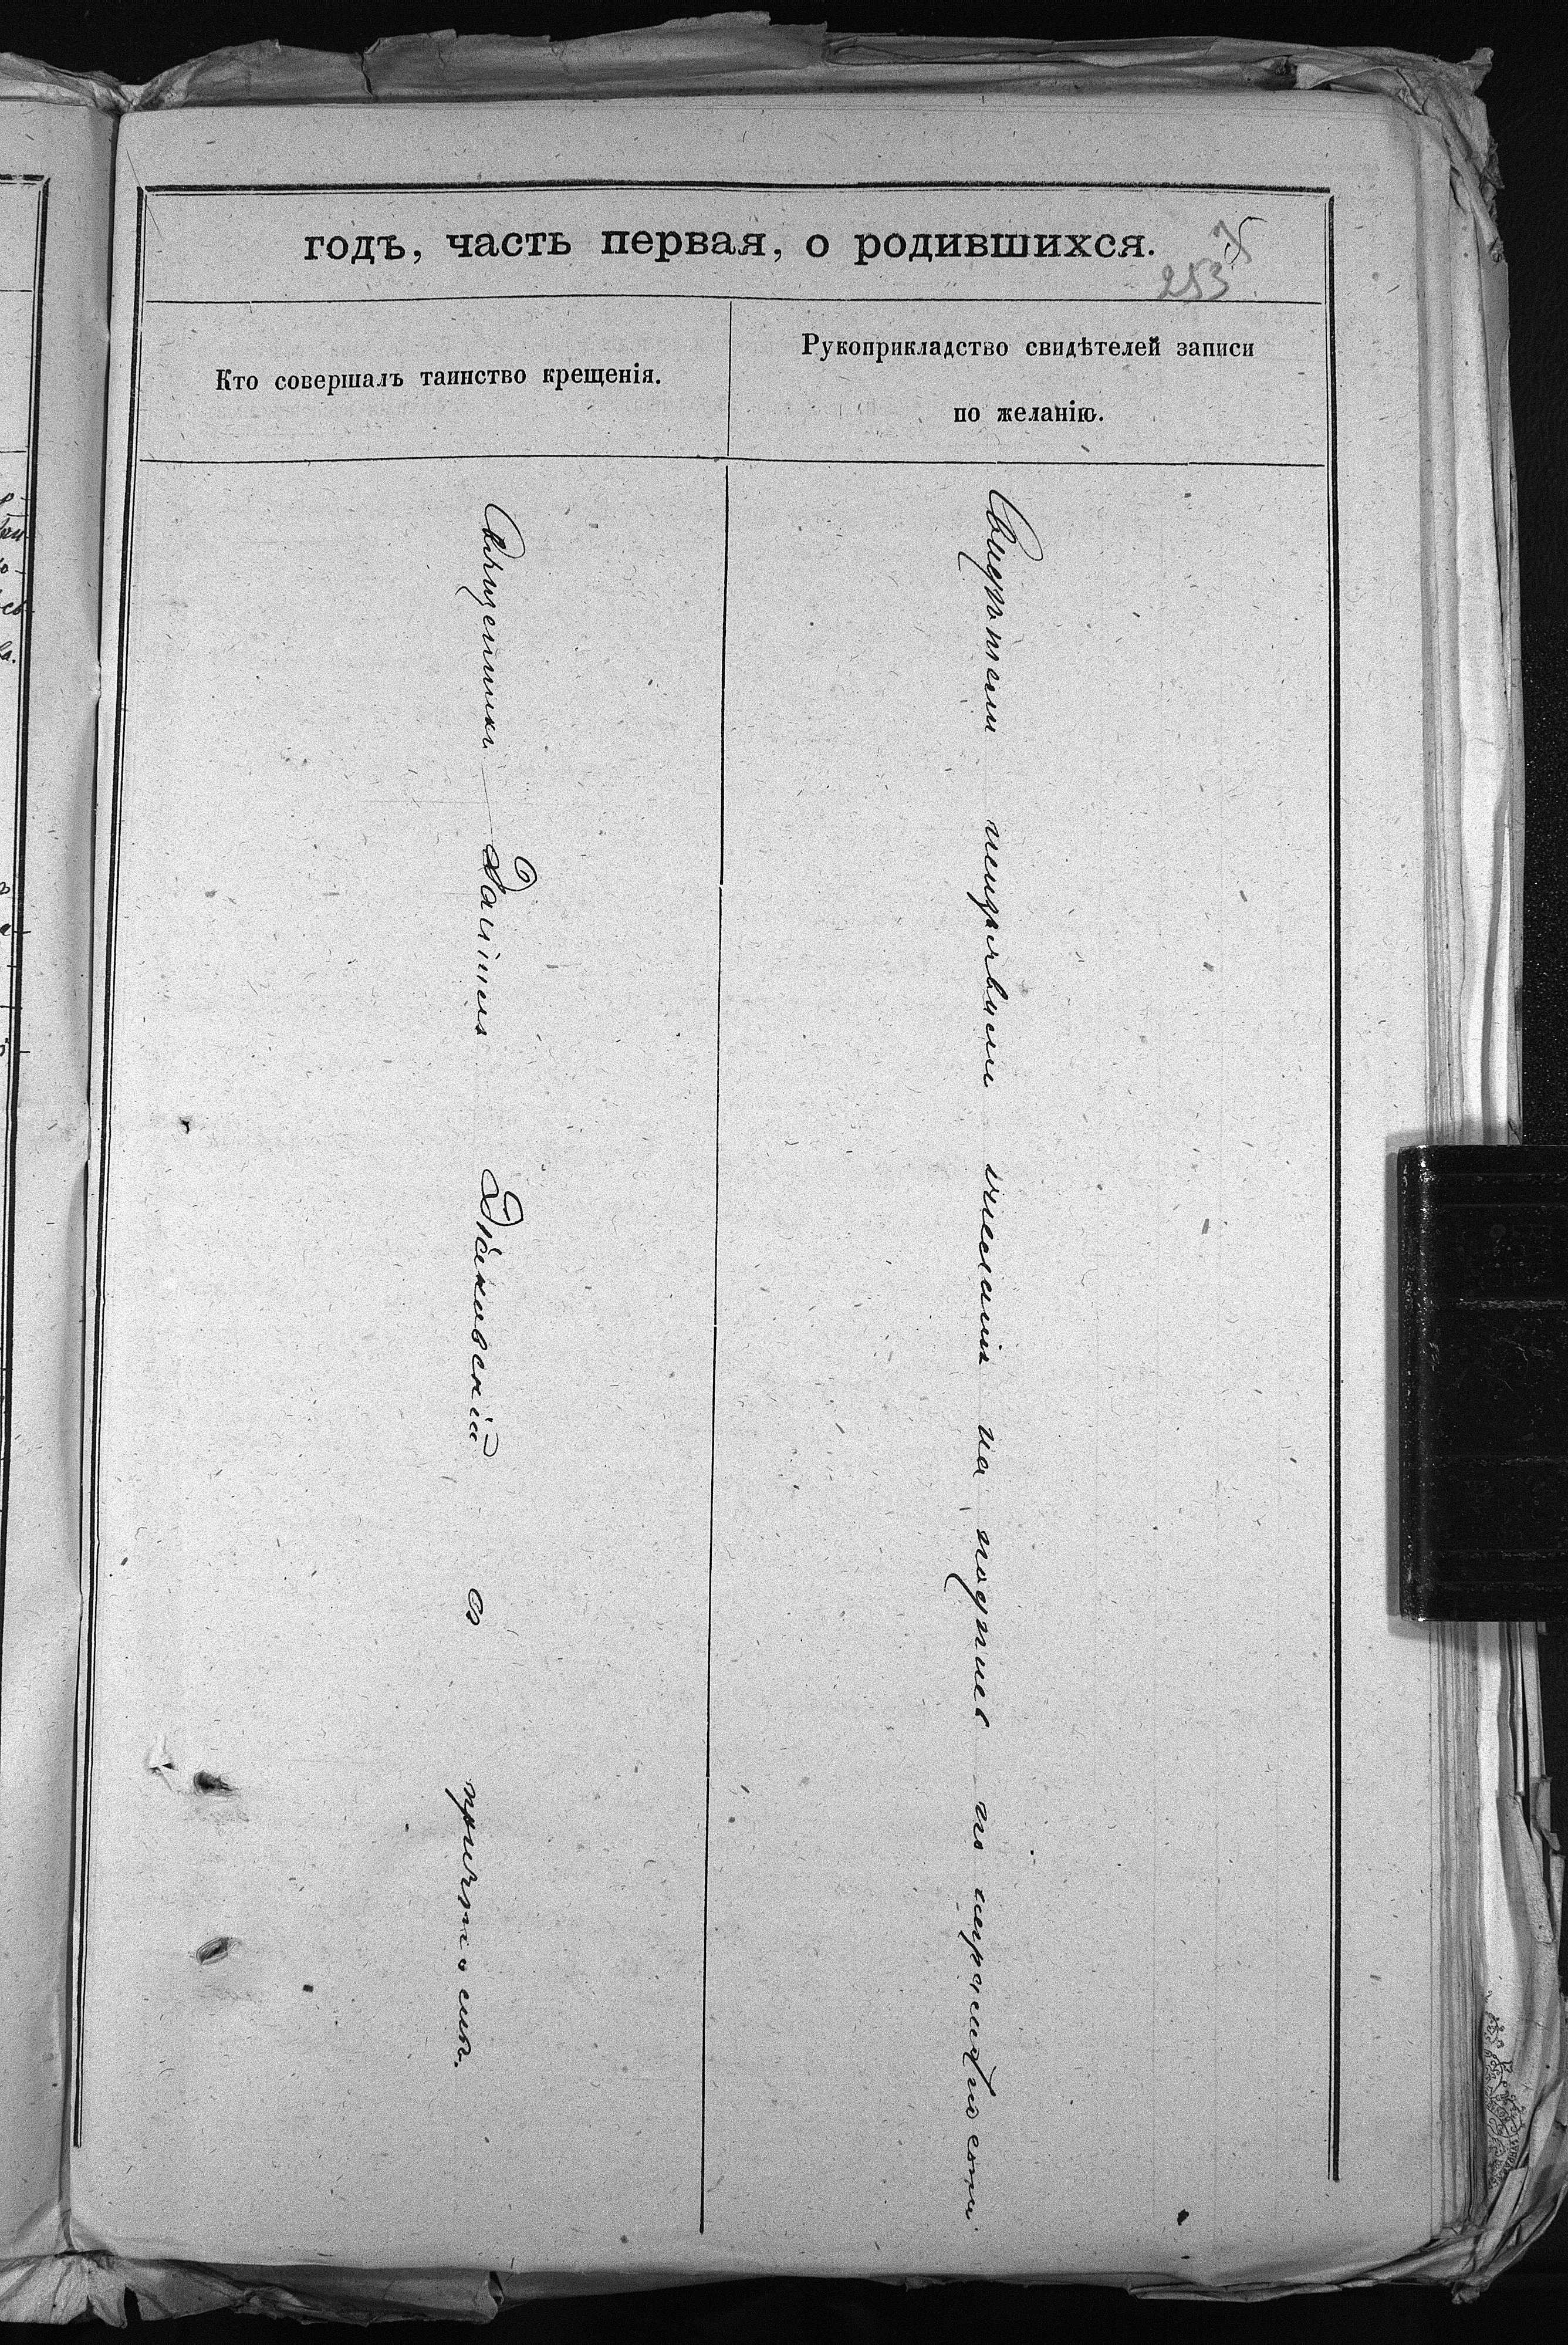 годъ, часть первая, о родившихся.
253
Кто совершалъ таинство крещенія.
Рукоприкладство свидѣтелей записи
по желанію.
Священникъ Даніилъ Дьяковскій съ причтомъ.
Свидѣтели неизъявили желанія на подпись по неграмотности